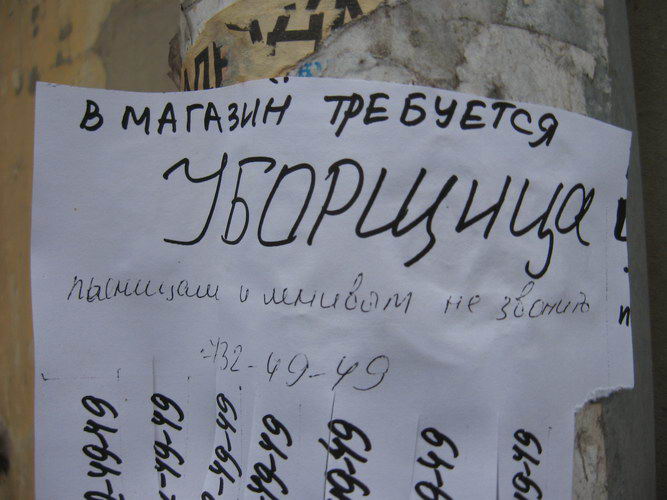 В МАГАЗИЙ ТРЕБУЕТСЯ
УБОРЩИЦа
пьяницам и ленивым не звонить
432-49-49
2-49-49
-49-49
2-49-49
49-49
49-49
49-49
49-49